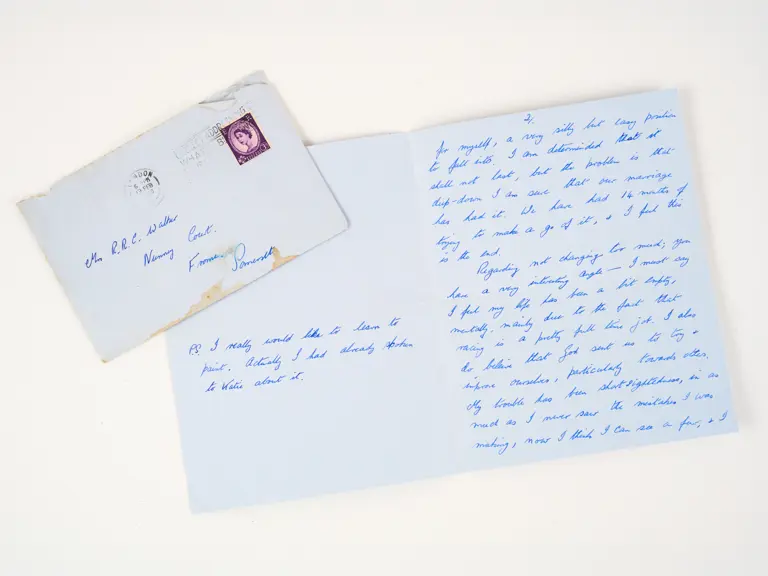 LONDON
Mrs R.R.C. Walker
Nunney Court.
Frome
Somerset
P.S. I really would like to learn to
paint. Actually I had already spoken
to Katie about it.
2/.
for myself, a very silly but easy position
to fall into. I am determined that it
shall not last, but the problem is that
deep-down I am sure that our marriage
has had it. We have had 14 months of
trying to make a go of it, & I feel this
is the end.
Regarding not changing too much; you
have a very interesting angle — I must say
I feel my life has been a bit empty,
mentally, mainly due to the fact that
racing is a pretty full time job. I also
do believe that God sent us to try &
improve ourselves, particularly towards others.
My trouble has been short-sightedness, in as
much as I never saw the mistakes I was
making, now I think I can see a few, & I